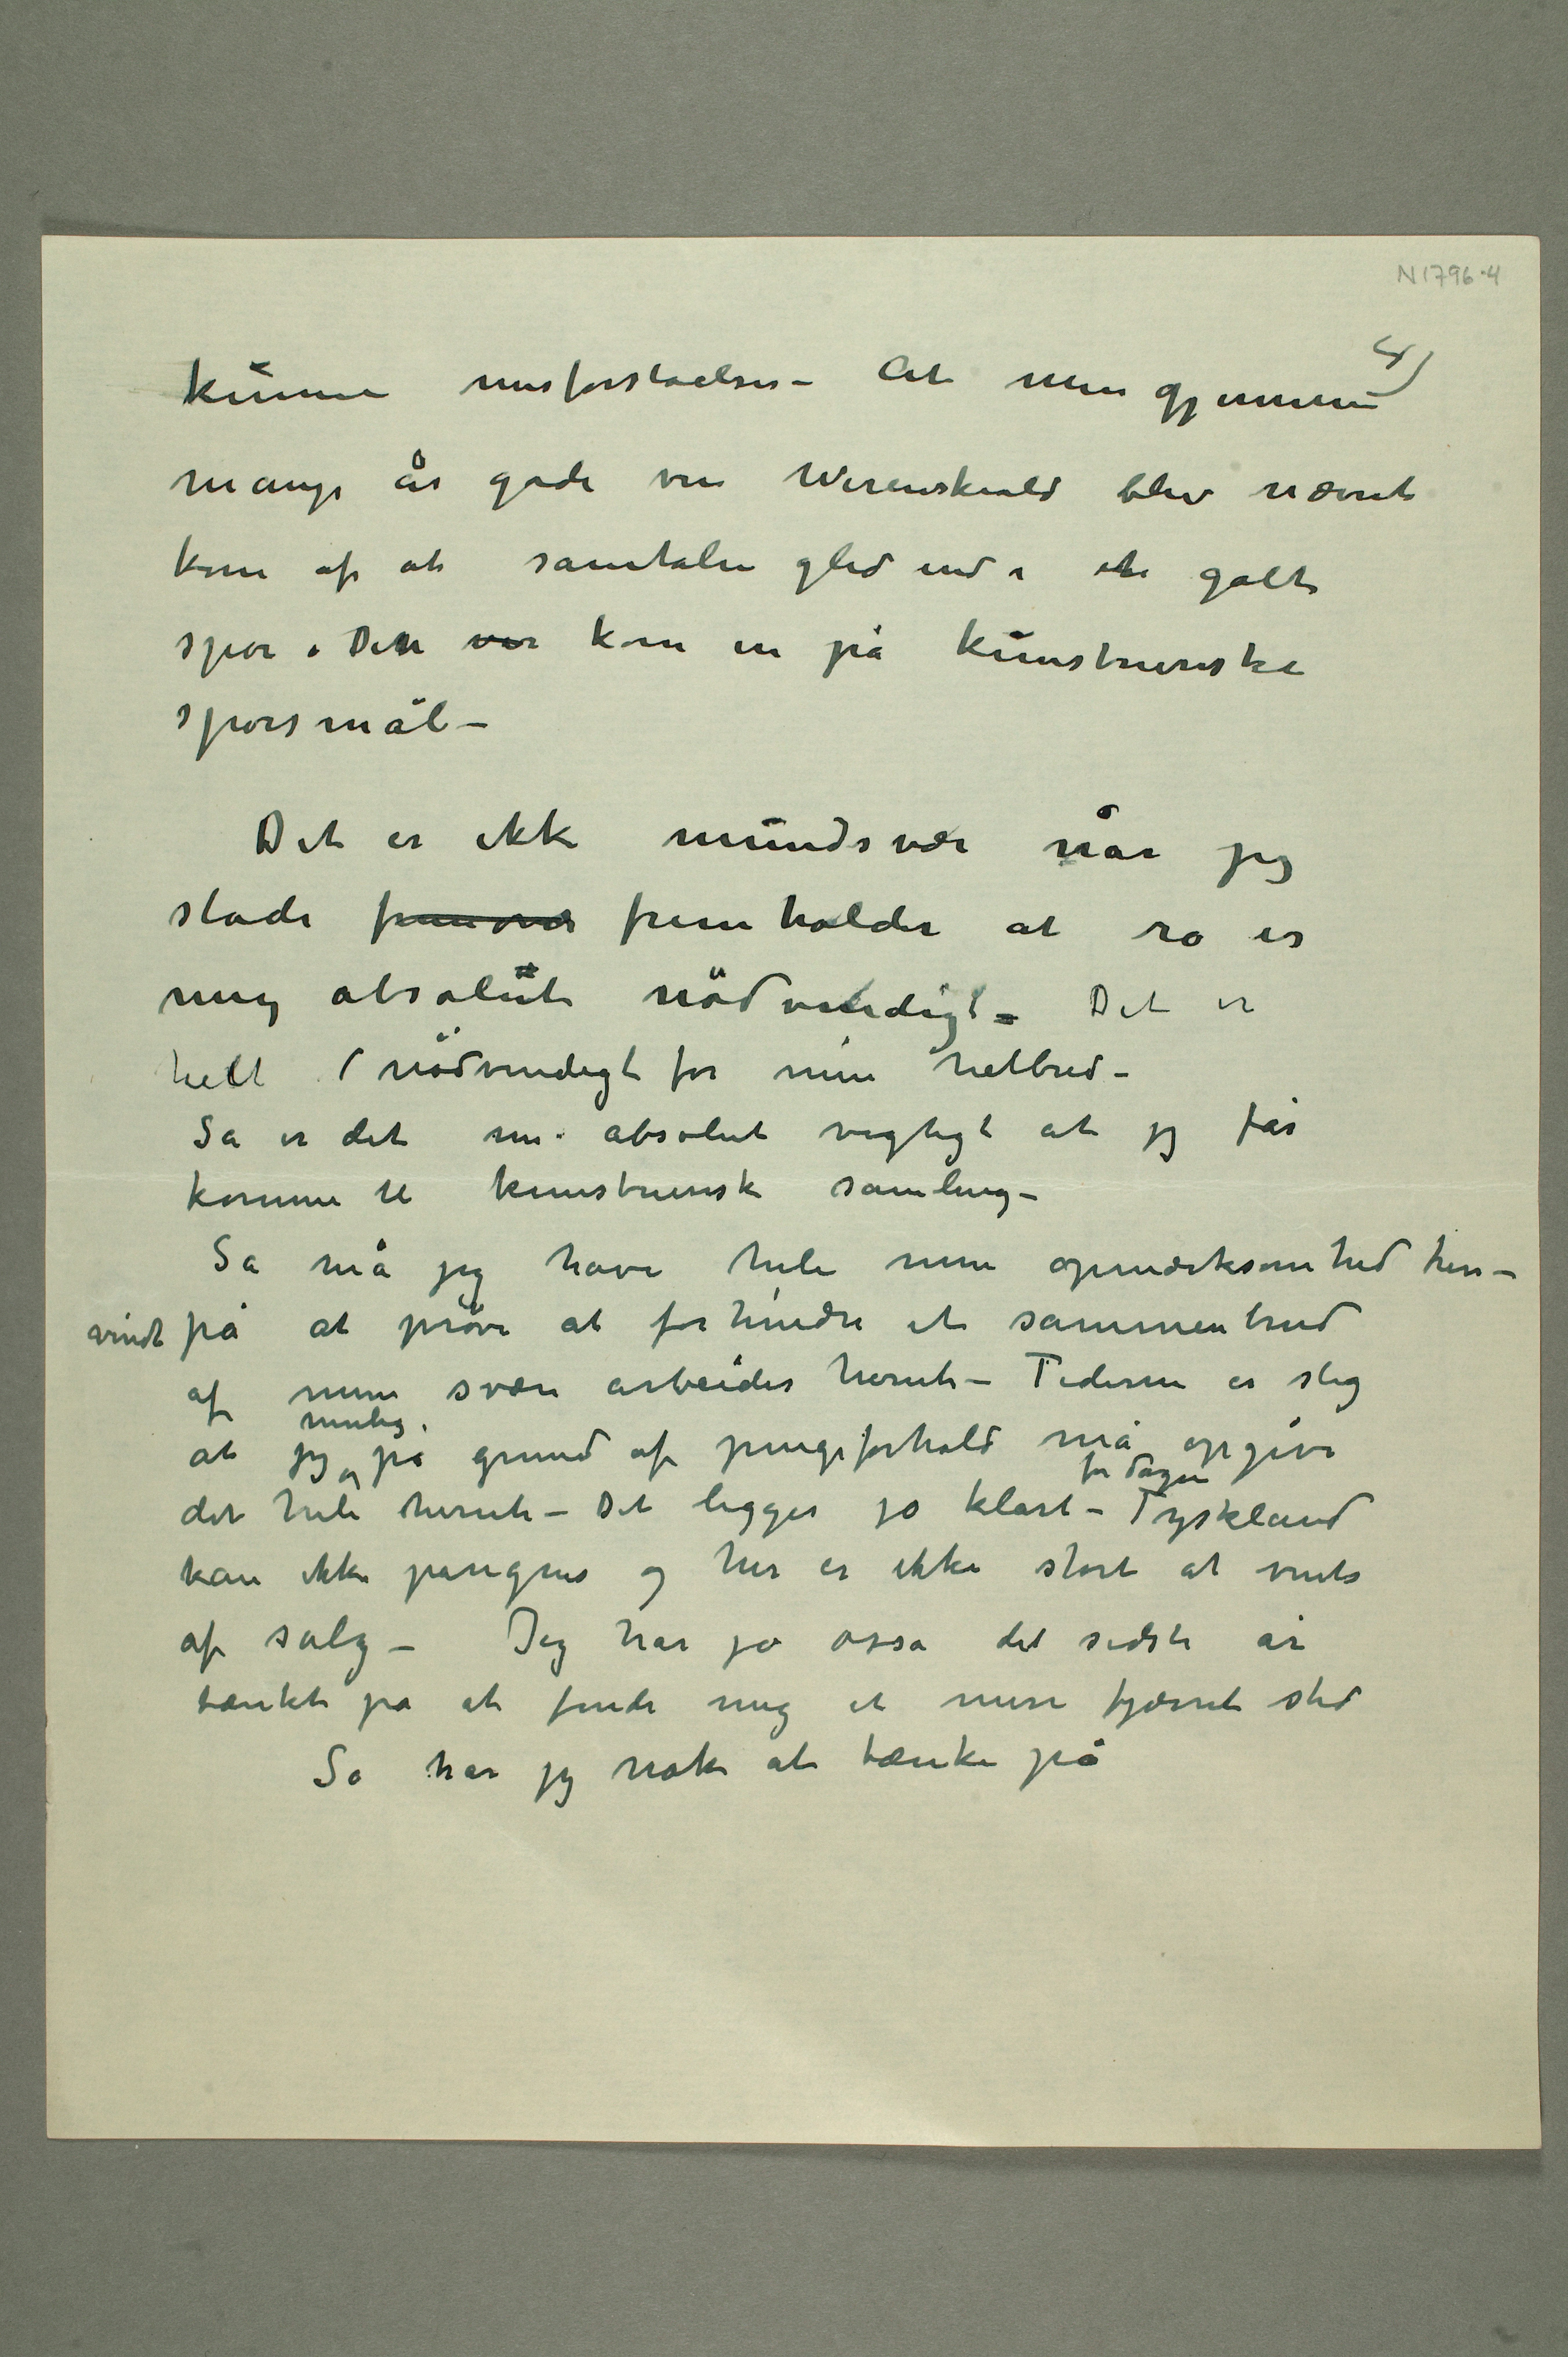 N1796-4
4)
kunne misforståelser – At min gjennem
mange år gode ven Werenskiold blev nævnt
kom af at samtalen gled ind i et galt
spor. Den var kom in på kunstneriske
spørsmål –
Det er ikke mundsvær når jeg
stadi fremover fremholder at ro er
mig absolut nödvendigt – Det er
helt nödvendigt for min helbred –
Så er det nu absolut vigtigt at jeg får
komme til kunstnerisk samling –
Så må jeg have hele min opmærksomhed hen-
vendt på at pröve at forhindre et sammenbrud
af mine svære arbeider herute – Tiderne er slig
at jeg mulig på grund af pengeforhold må opgive
det hele herute – Det ligger jo klart for dagen – Tyskland
kan ikke påregnes og her er ikke stort at vente
af salg – Jeg har jo osså det sidste år
tænkt på at finde mig et mere fjærnt sted
Så har jeg nok at tænke på